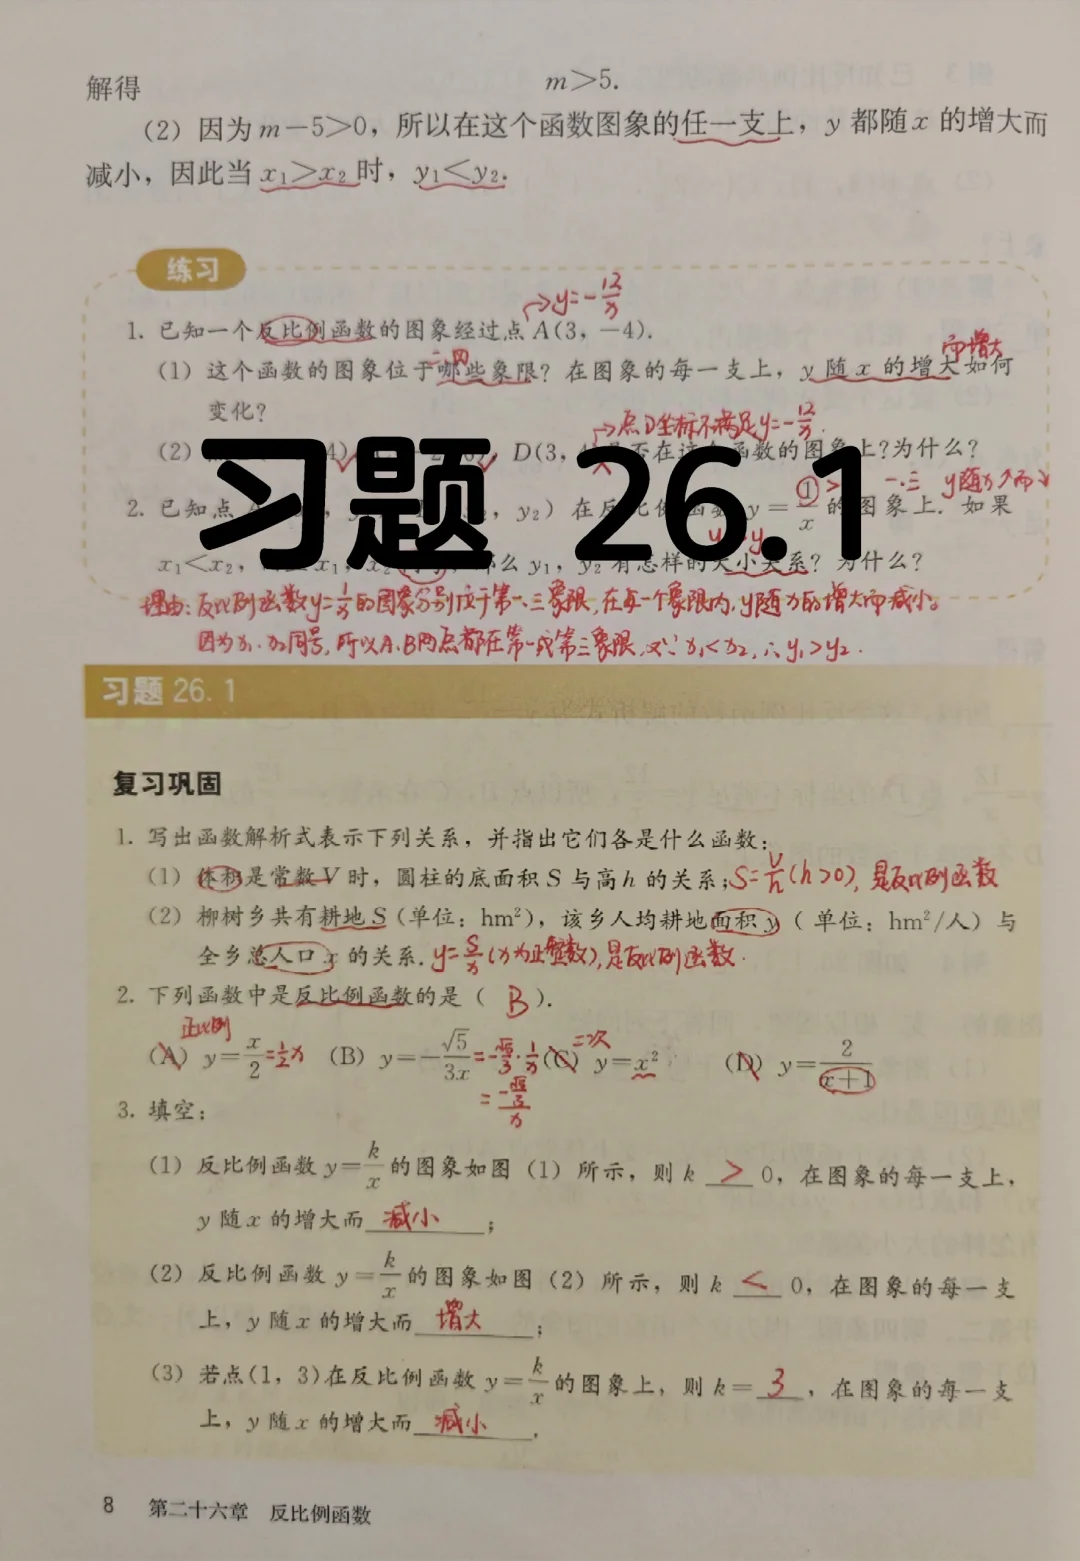 解得 m>5.
(2) 因为 m-5>0, 所以在这个函数图象的任一支上, y 都随 x 的增大而
减小, 因此当 x₁>x₂ 时, y₁<y₂.
练习
→y=-12/x
1. 已知一个反比例函数的图象经过点 A(3, -4).
二、四 而增大
(1) 这个函数的图象位于哪些象限? 在图象的每一支上, y 随 x 的增大如何
变化?
→点D坐标不满足y=-12/x.
(2) D(3, 否在这个函数的图象上?为什么?
习题 26.1
一、三 y随x↗而↘
2. 已知点 , y₂) 在反比例函数 y=1/x 的图象上. 如果
x₁<x₂, 那么 y₁, y₂ 有怎样的大小关系? 为什么?
理由: 反比例函数y=1/x的图象分别位于第一、三象限, 在每一个象限内, y随x的增大而减小。
因为x₁、x₂同号, 所以A、B两点都在第一或第三象限, 又∵x₁<x₂, ∴y₁>y₂.
习题 26.1
复习巩固
1. 写出函数解析式表示下列关系, 并指出它们各是什么函数:
(1) 体积是常数 V 时, 圆柱的底面积 S 与高 h 的关系; S=V/h(h>0), 是反比例函数
(2) 柳树乡共有耕地 S (单位: hm²), 该乡人均耕地面积 y ( 单位: hm²/人) 与
全乡总人口 x 的关系. y=S/x(x为正整数), 是反比例函数.
2. 下列函数中是反比例函数的是 ( B ).
正比例 二次
(A) y=x/2=1/2x (B) y=-√5/3x=-√5/3·1/x (C) y=x² (D) y=2/(x+1)
=-√5/3/x
3. 填空:
(1) 反比例函数 y=k/x 的图象如图 (1) 所示, 则 k > 0, 在图象的每一支上,
y 随 x 的增大而 减小 ;
(2) 反比例函数 y=k/x 的图象如图 (2) 所示, 则 k < 0, 在图象的每一支
上, y 随 x 的增大而 增大 ;
(3) 若点(1, 3)在反比例函数 y=k/x 的图象上, 则 k= 3 , 在图象的每一支
上, y 随 x 的增大而 减小 .
8 第二十六章 反比例函数